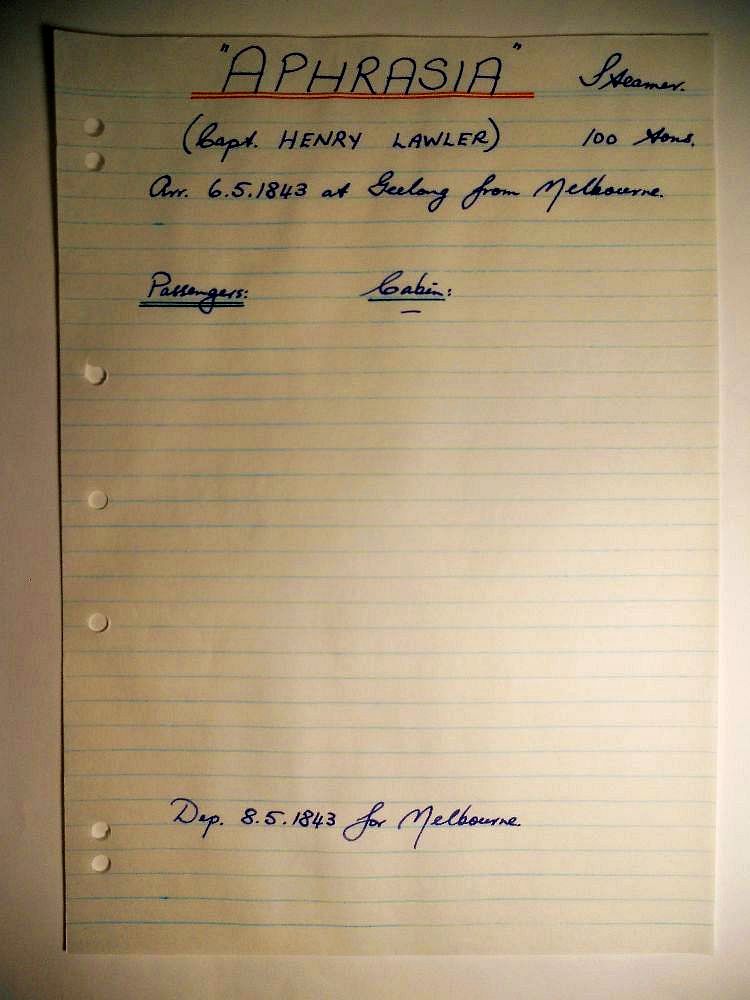 "APHRASIA" Steamer.
(Capt. HENRY LAWLER) 100 tons.
Arr. 6.5.1843 at Geelong from Melbourne.
Passengers: Cabin:
—
Dep. 8.5.1843 for Melbourne.